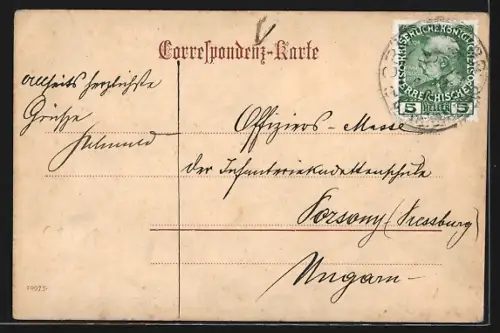 Correspondenz-Karte
Allseits herzlichste
Grüsse
KAISERLICHE KÖNIGLICHE
ÖSTERREICHISCHE POST
5 HELLER 5
Offiziers-Messe
der Infanteriekadettenschule
Porsony (Pressburg)
Ungarn